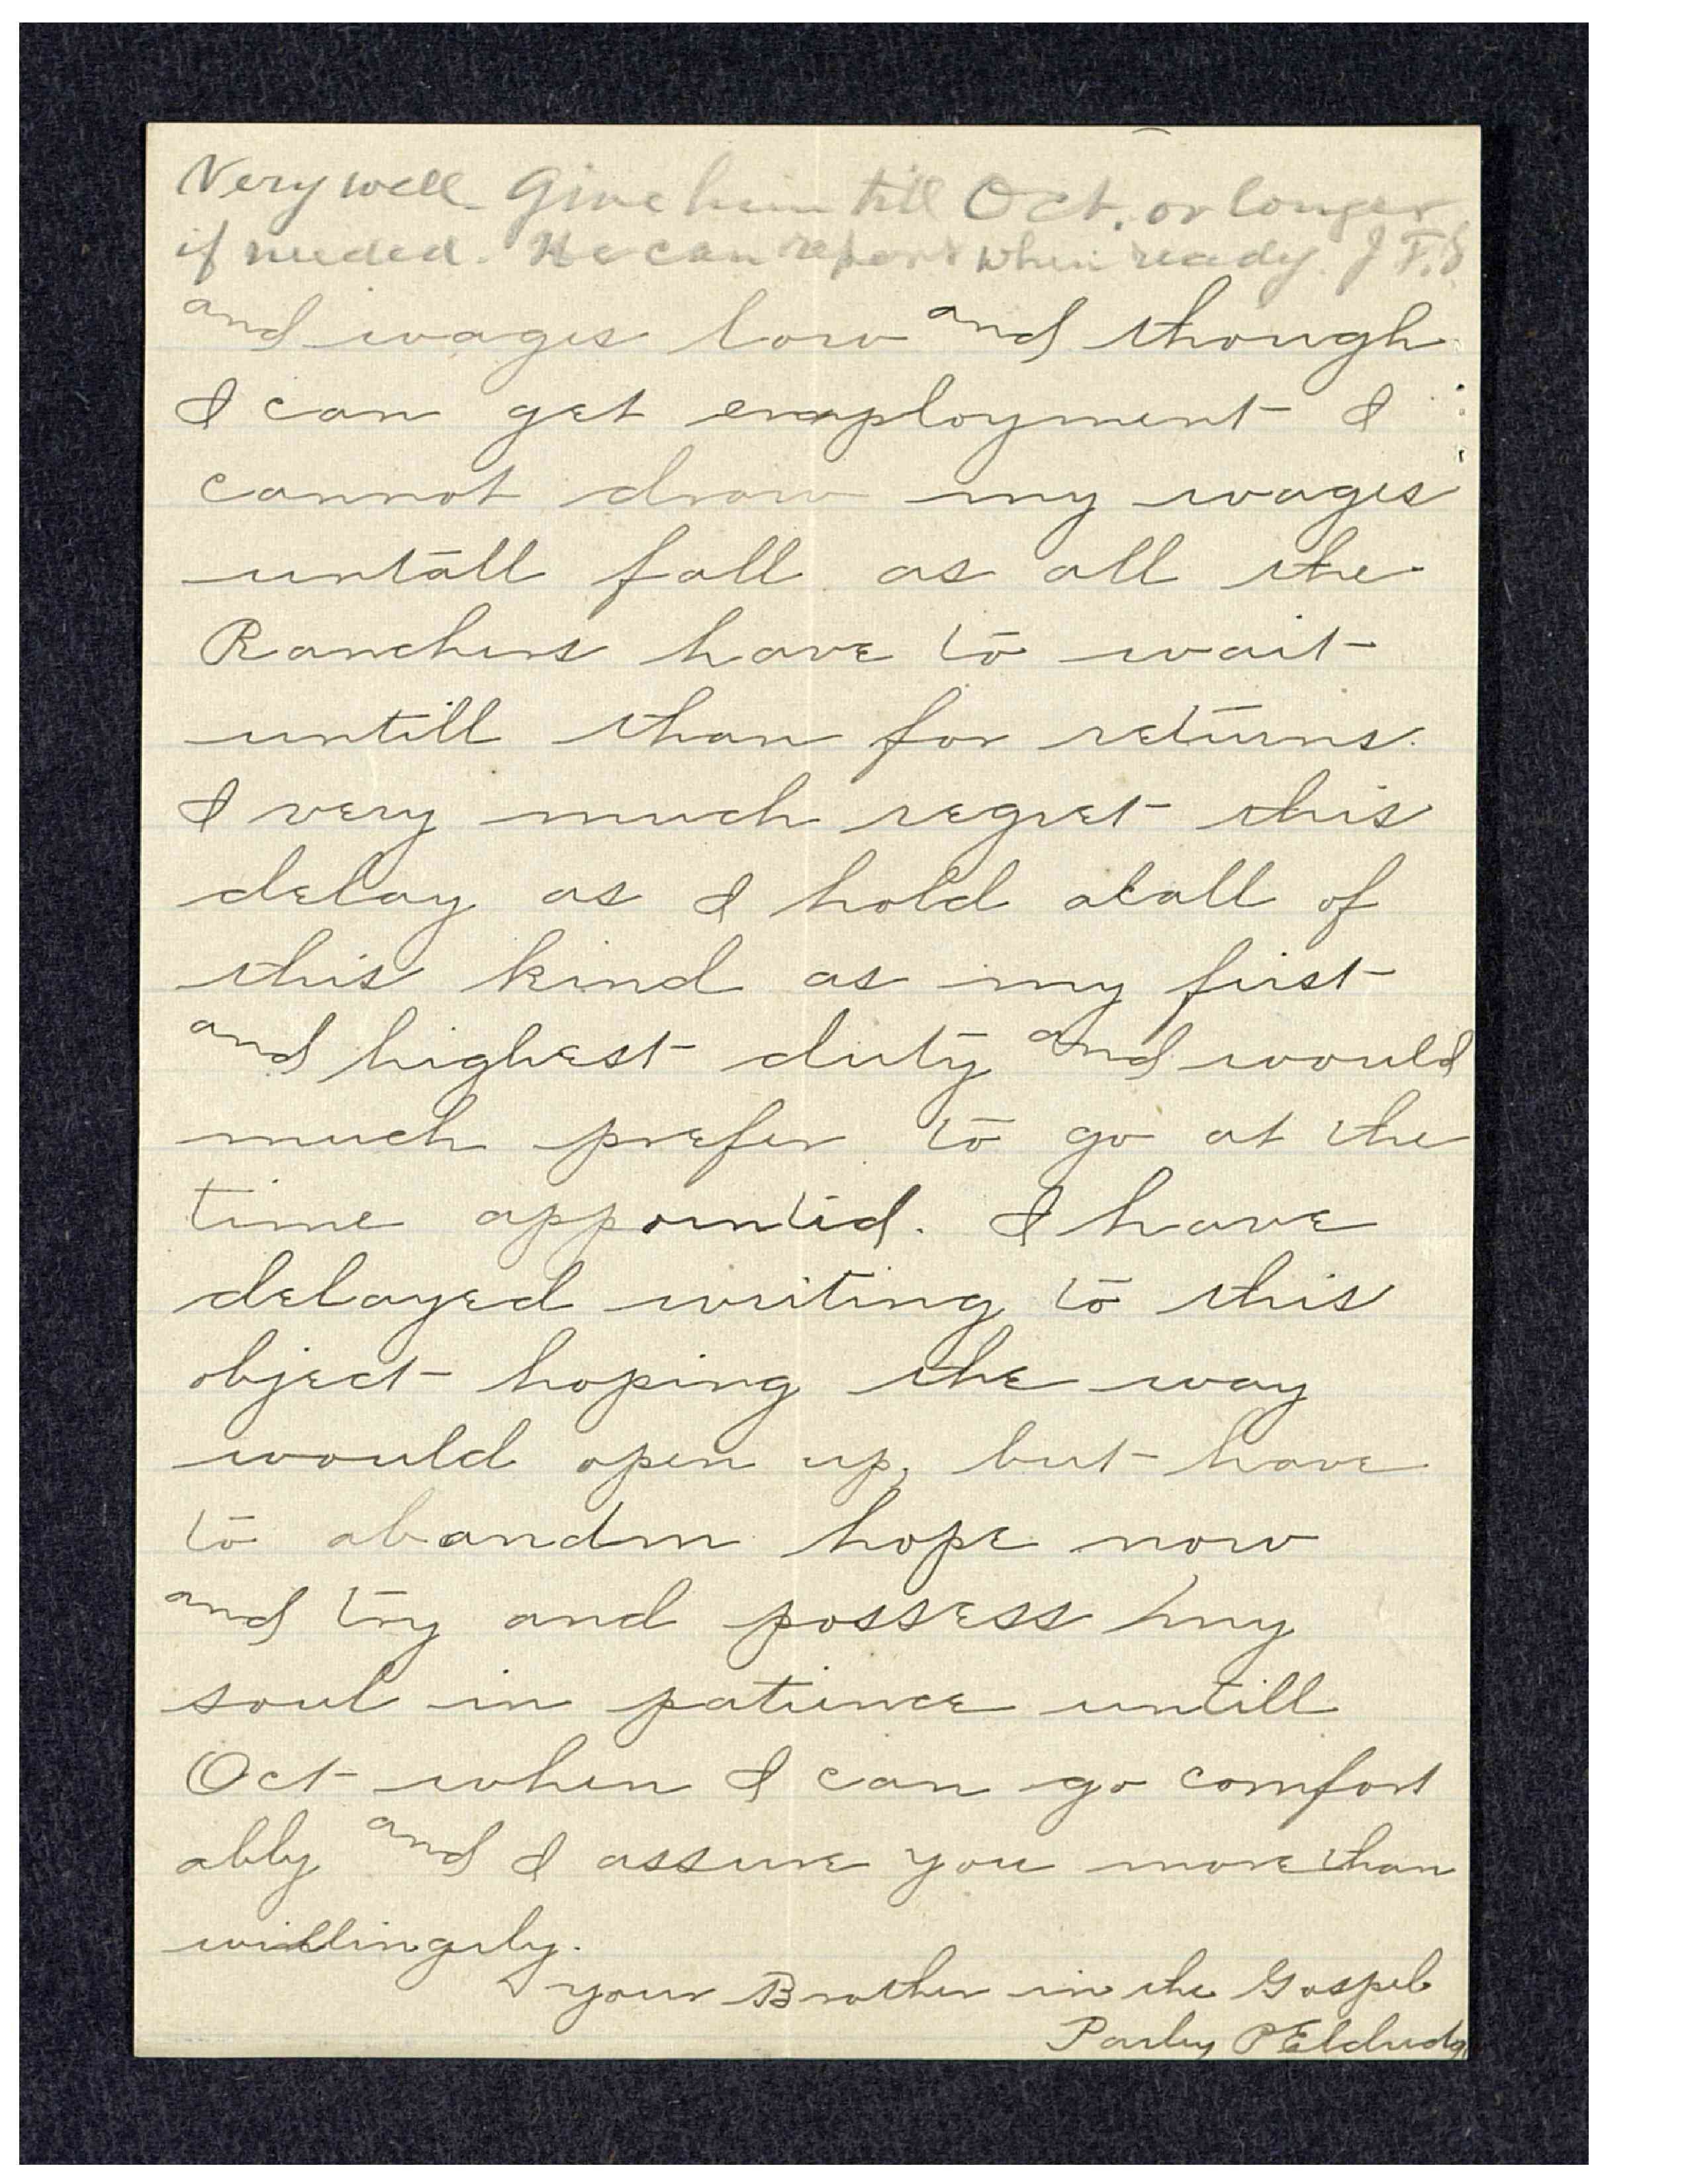 Very well. Give him till Oct. or longer
if needed. He can report when ready. J F. S
and wages low and though
I can get employment I
cannot draw my wages
untall fall as all the
Ranchers have to wait
untill than for returns.
I very much regret this
delay as I hold a call of
this kind as my first
and highest duty and would
much prefer to go at the
time appointed. I have
delayed writing to this
object hoping the way
would open up, but have
to abandon hope now
and try and possess my
soul in patience untill
Oct when I can go comfort
ably and I assure you more than
willingly.
your Brother in the Gospel
Parley P Eldridge